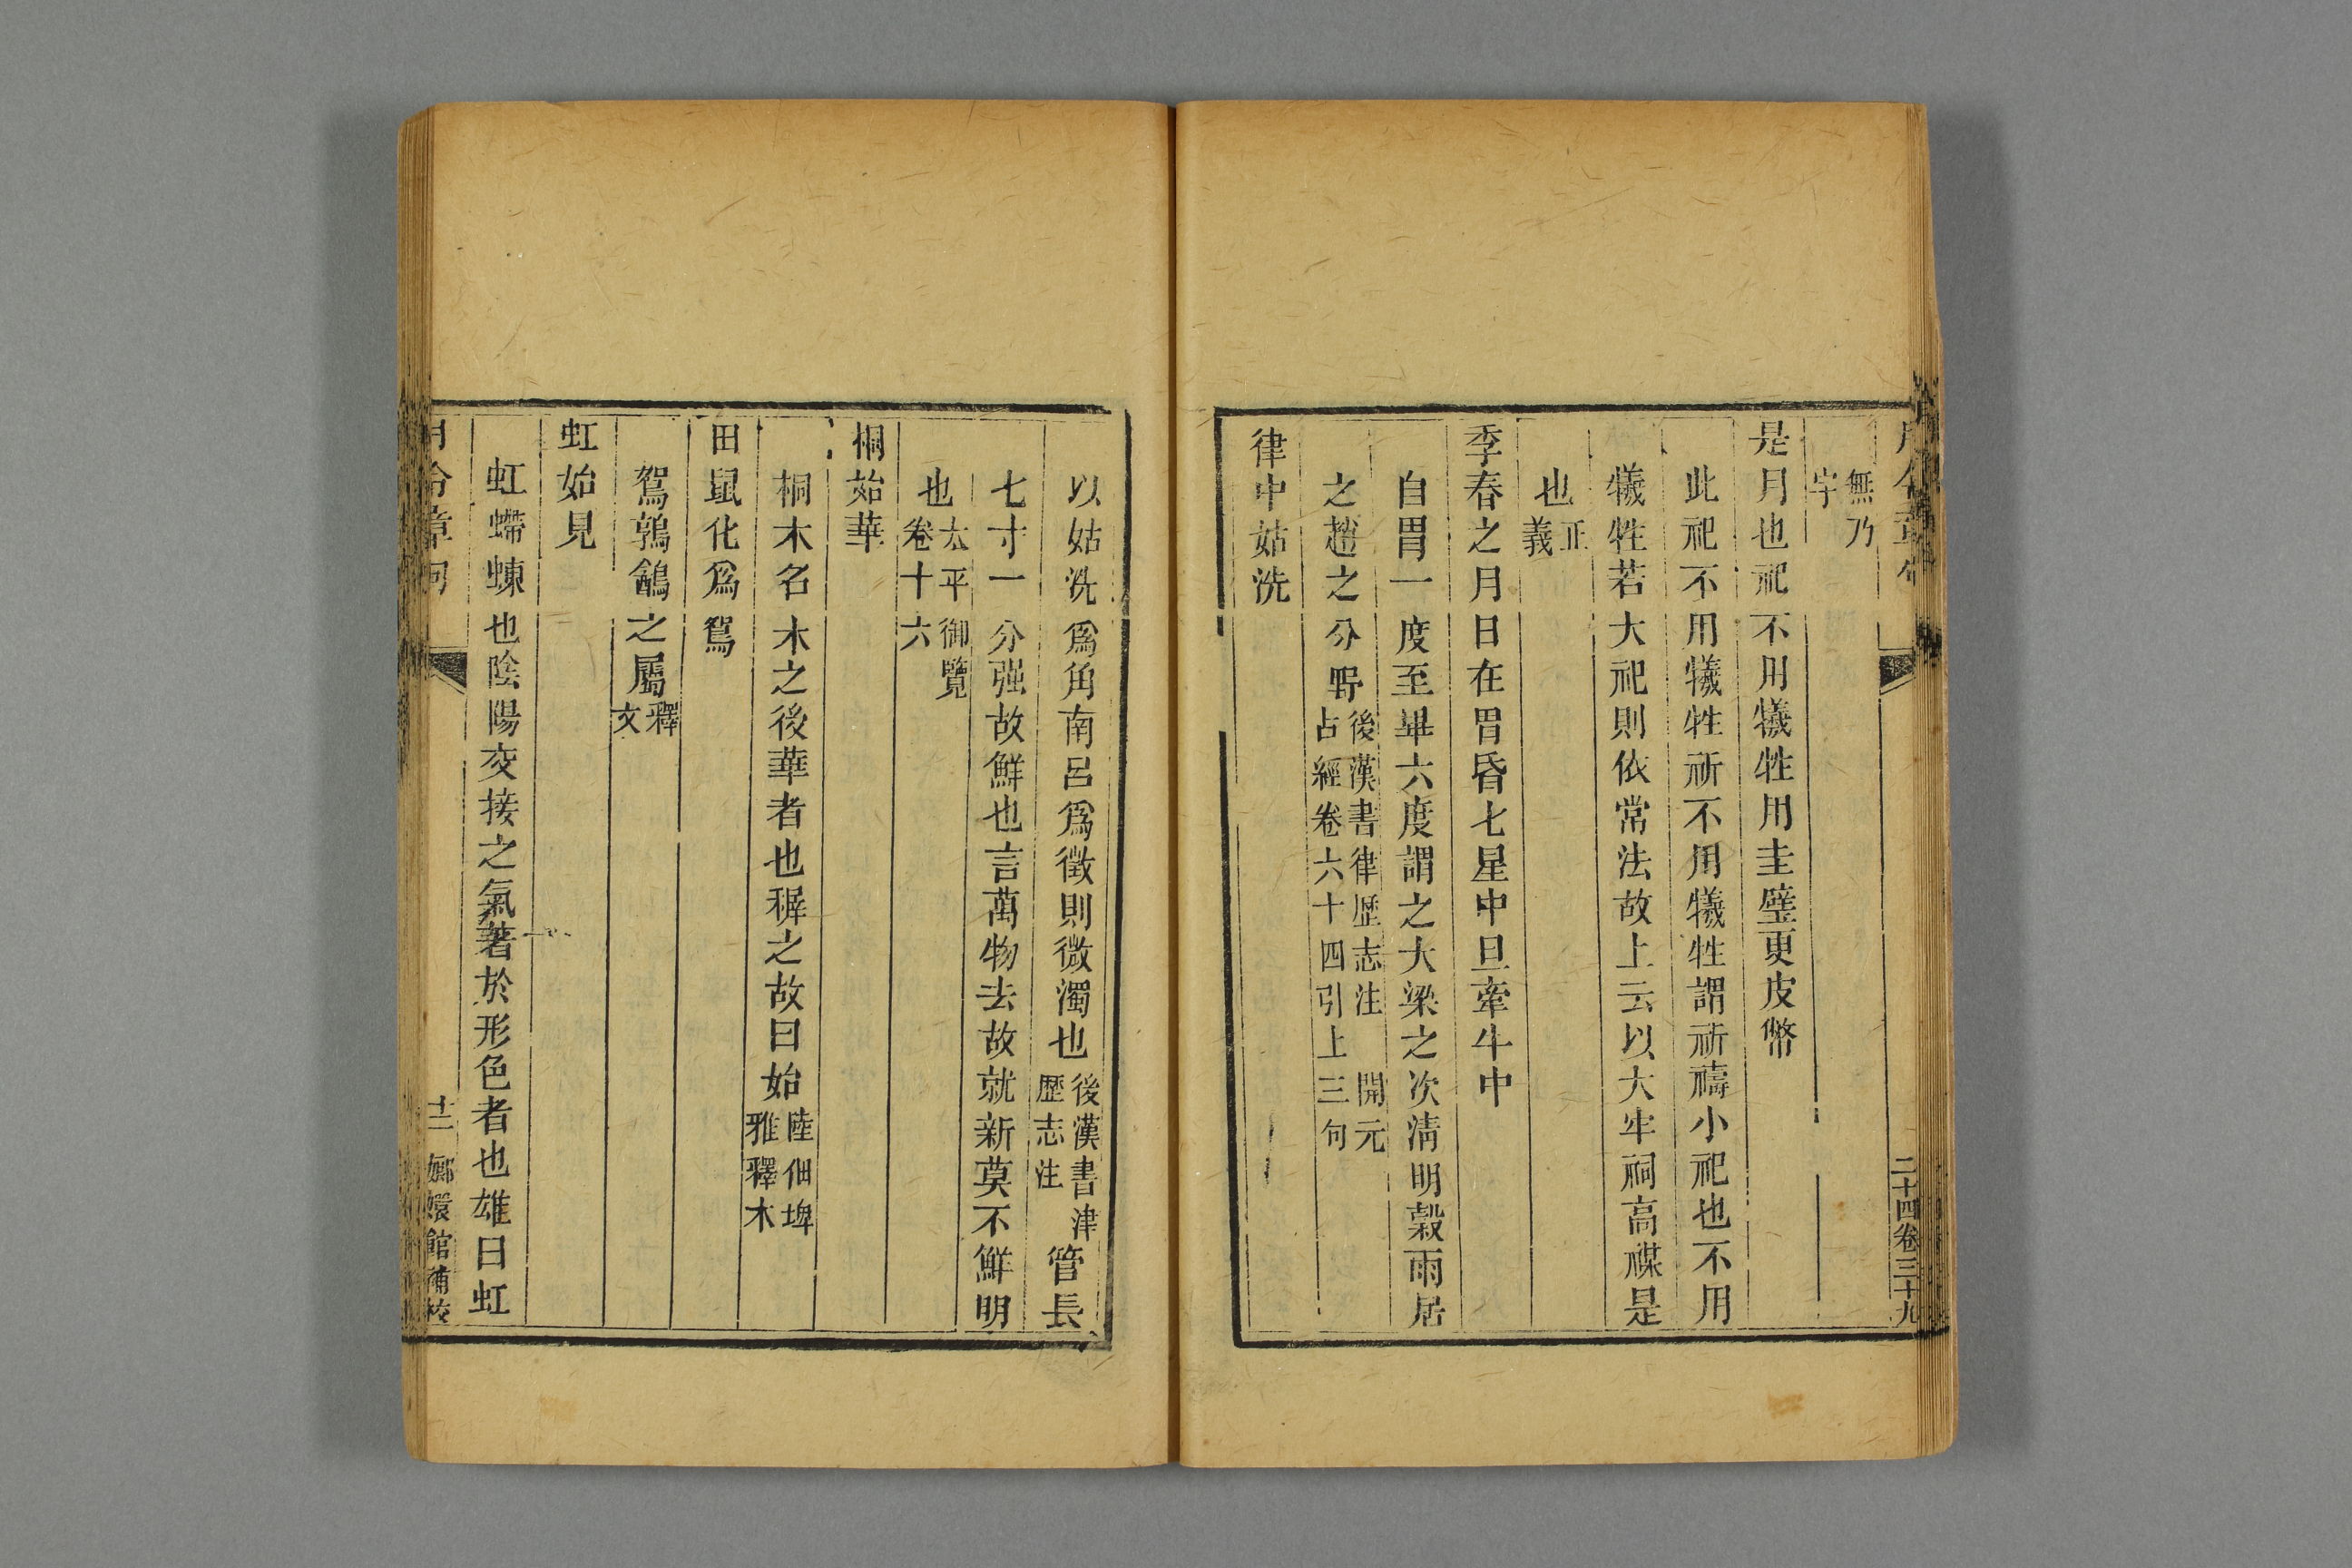 無乃
字
是月也祀不用犧牲用圭璧更皮幣
此祀不用犧牲祈不用犧牲謂祈禱小祀也不用
犧牲若大祀則依常法故上云以大牢祠高禖是
也正義
季春之月日在胃昏七星中旦牽牛中
自胃一度至畢六度謂之大梁之次清明穀雨居
之趙之分野後漢書律歷志注 開元占經卷六十四引上三句
律中姑洗
二十四卷三十九
以姑洗爲角南呂爲徵則微濁也後漢書津歷志注管長
七寸一分强故鮮也言萬物去故就新莫不鮮明
也太平御覽卷十六
桐始華
桐木名木之後華者也穉之故曰始陸佃埤雅釋木
田鼠化爲鴽
鴽鶉鶬之屬釋文
虹始見
虹螮蝀也陰陽交接之氣著於形色者也雄曰虹
月令章句
十二
嫏嬛館補校